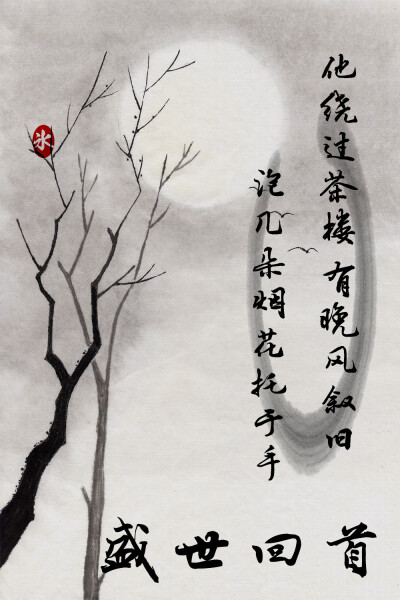 他绕过茶楼 有晚风叙旧
泡几朵烟花托于手
盛世回首
氷